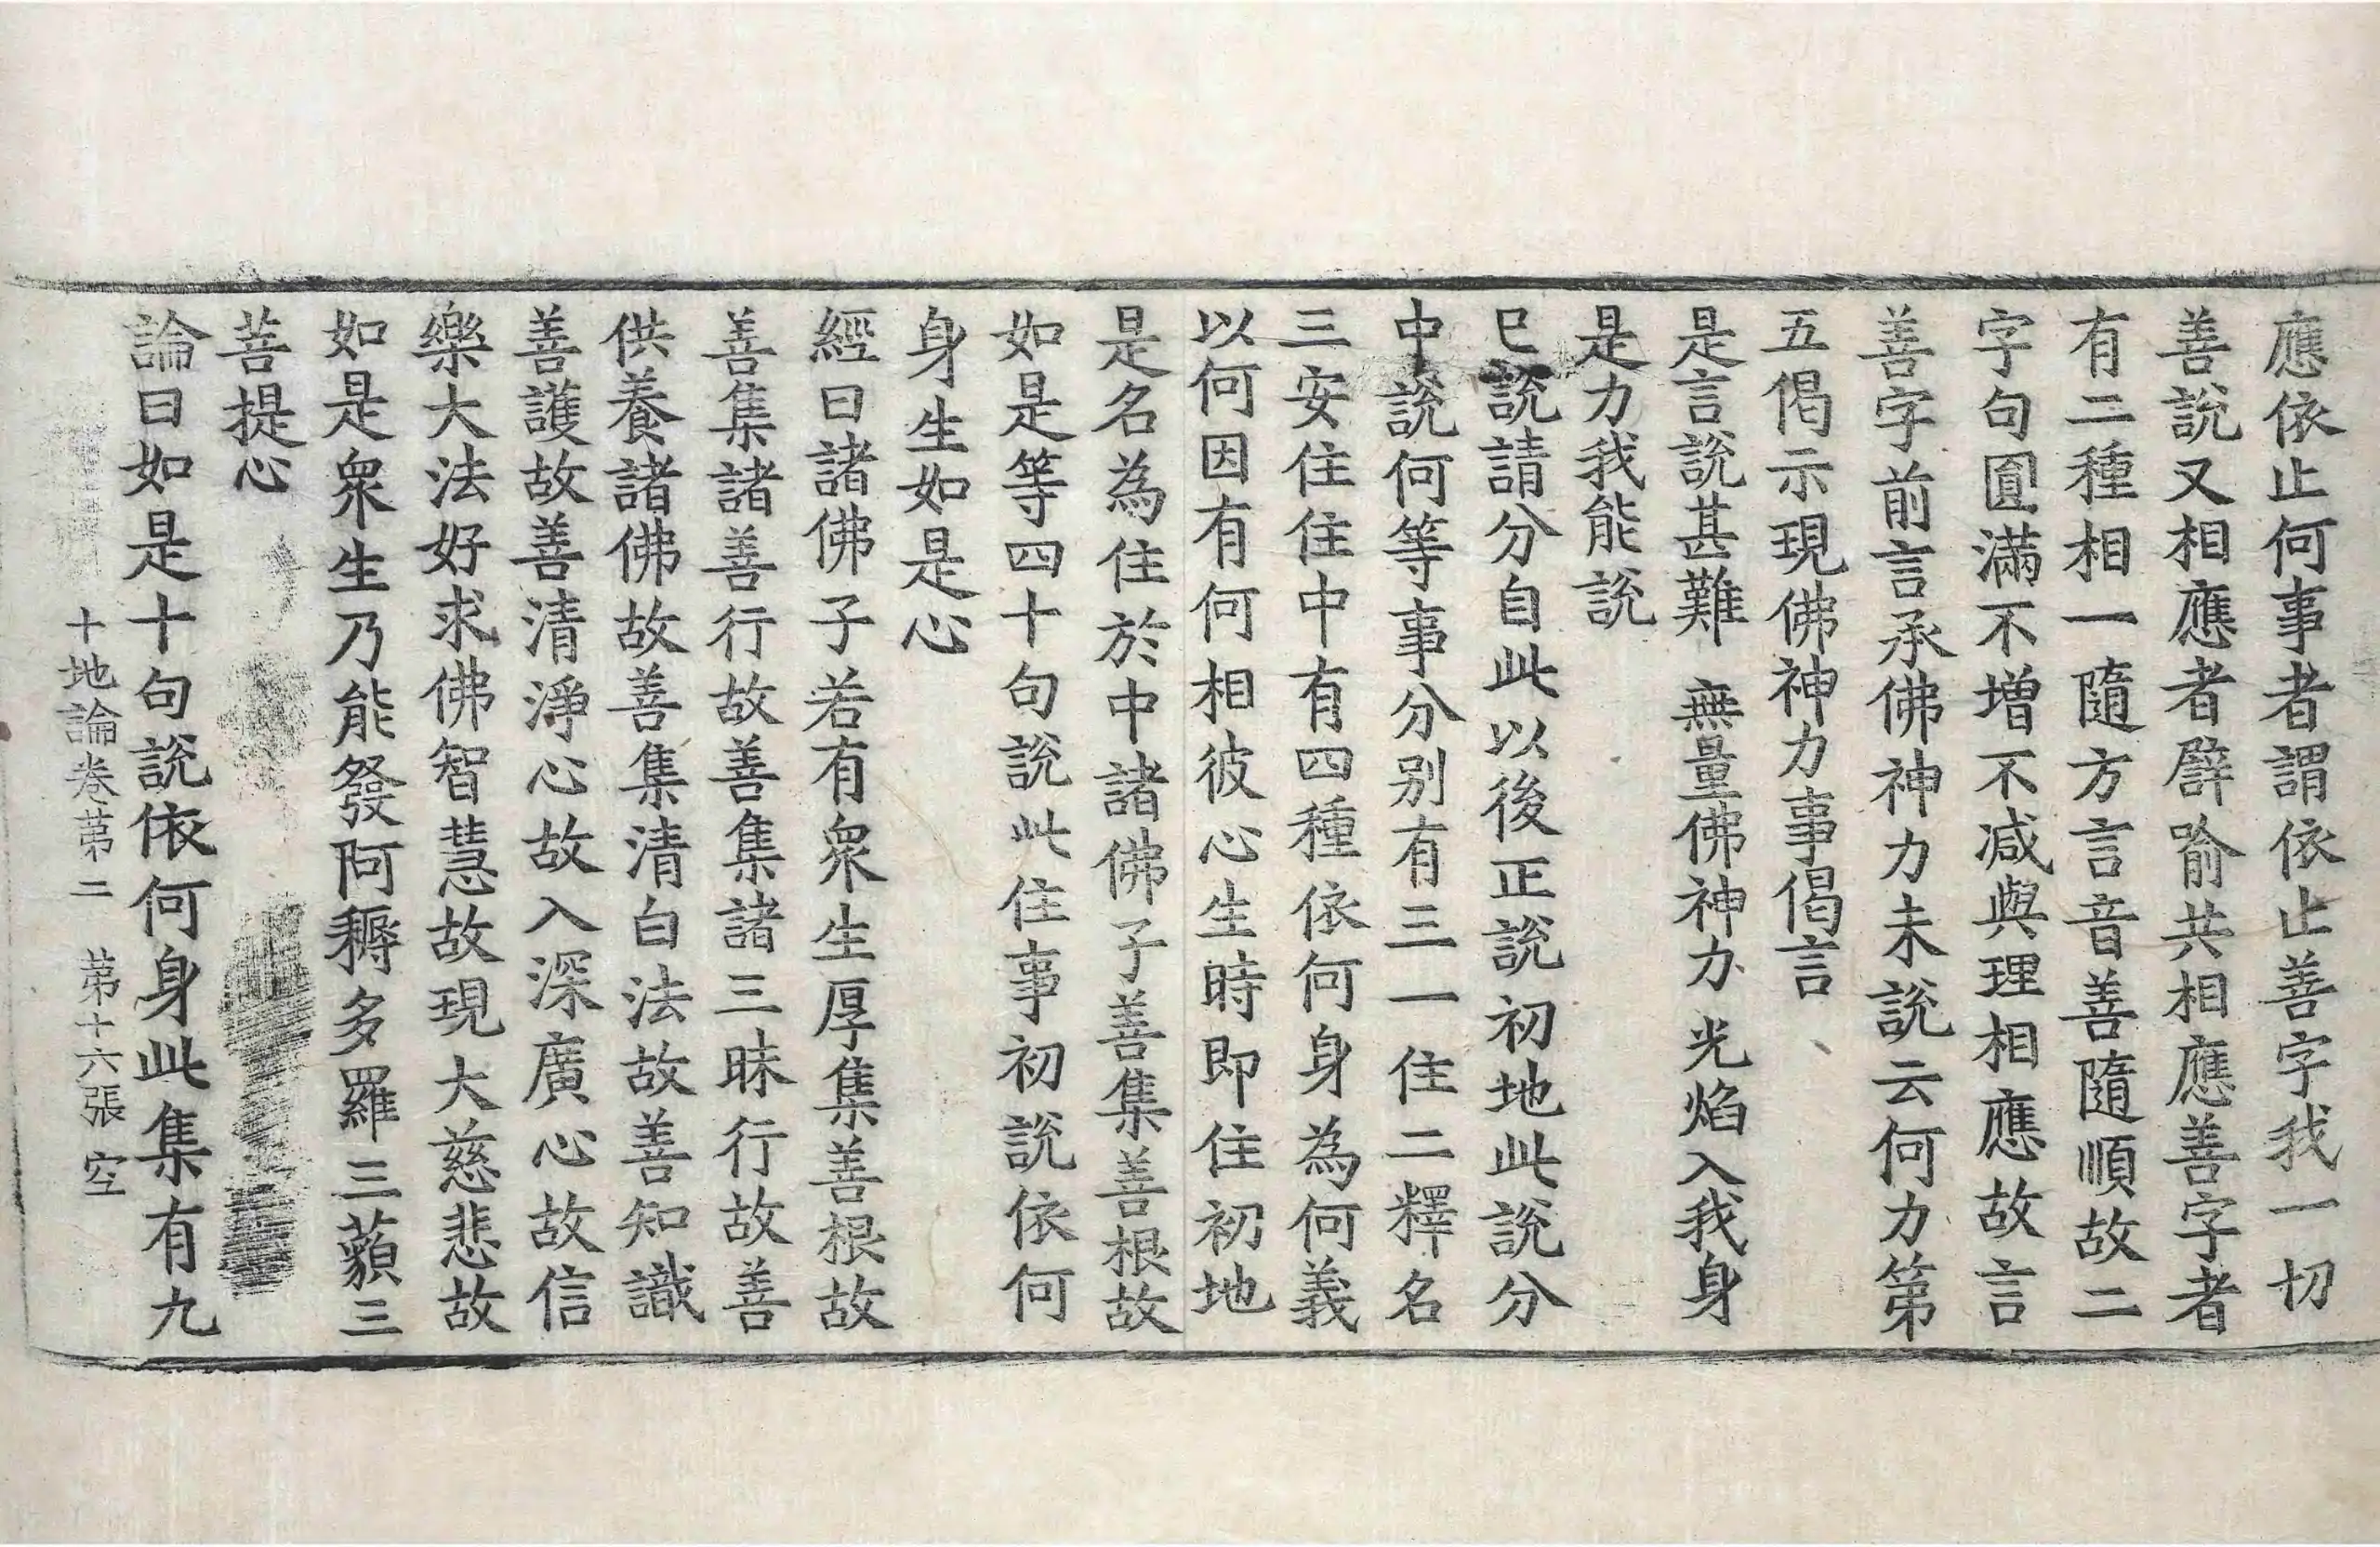 應依止何事者謂依止善字我一切
善說又相應者譬喻共相應善字者
有二種相一隨方言音善隨順故二
字句圓滿不增不減與理相應故言
善字前言承佛神力未說云何力第
五偈示現佛神力事偈言
是言說甚難 無量佛神力 光焰入我身
是力我能說
已說請分自此以後正說初地此說分
中說何等事分別有三一住二釋名
三安住住中有四種依何身為何義
以何因有何相彼心生時即住初地
是名為住於中諸佛子善集善根故
如是等四十句說此住事初說依何
身生如是心
經曰諸佛子若有眾生厚集善根故
善集諸善行故善集諸三昧行故善
供養諸佛故善集清白法故善知識
善護故善清淨心故入深廣心故信
樂大法好求佛智慧故現大慈悲故
如是眾生乃能發阿耨多羅三藐三
菩提心
論曰如是十句說依何身此集有九
十地論卷第二 第十六張 空